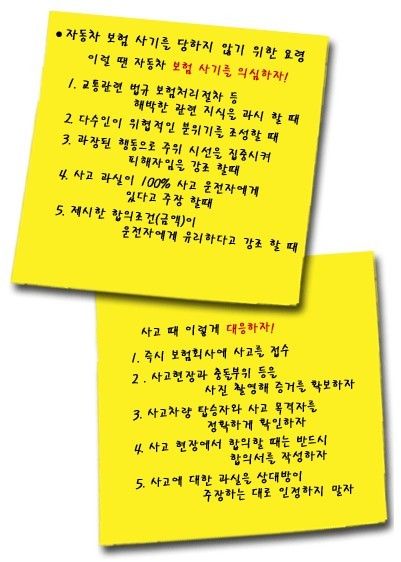 ● 자동차 보험 사기를 당하지 않기 위한 요령
이럴 땐 자동차 보험 사기를 의심하자!
1. 교통관련 법규 보험처리절차 등
해박한 관련 지식을 과시 할 때
2. 다수인이 위협적인 분위기를 조성할 때
3. 과장된 행동으로 주위 시선을 집중시켜
피해자임을 강조 할때
4. 사고 과실이 100% 사고 운전자에게
있다고 주장 할때
5. 제시한 합의조건(금액)이
운전자에게 유리하다고 강조 할 때
사고 때 이렇게 대응하자!
1. 즉시 보험회사에 사고를 접수
2. 사고현장과 충돌부위 등을
사진 촬영해 증거를 확보하자
3. 사고차량 탑승자와 사고 목격자를
정확하게 확인하자
4. 사고 현장에서 합의할 때는 반드시
합의서를 작성하자
5. 사고에 대한 과실을 상대방이
주장하는 대로 인정하지 말자